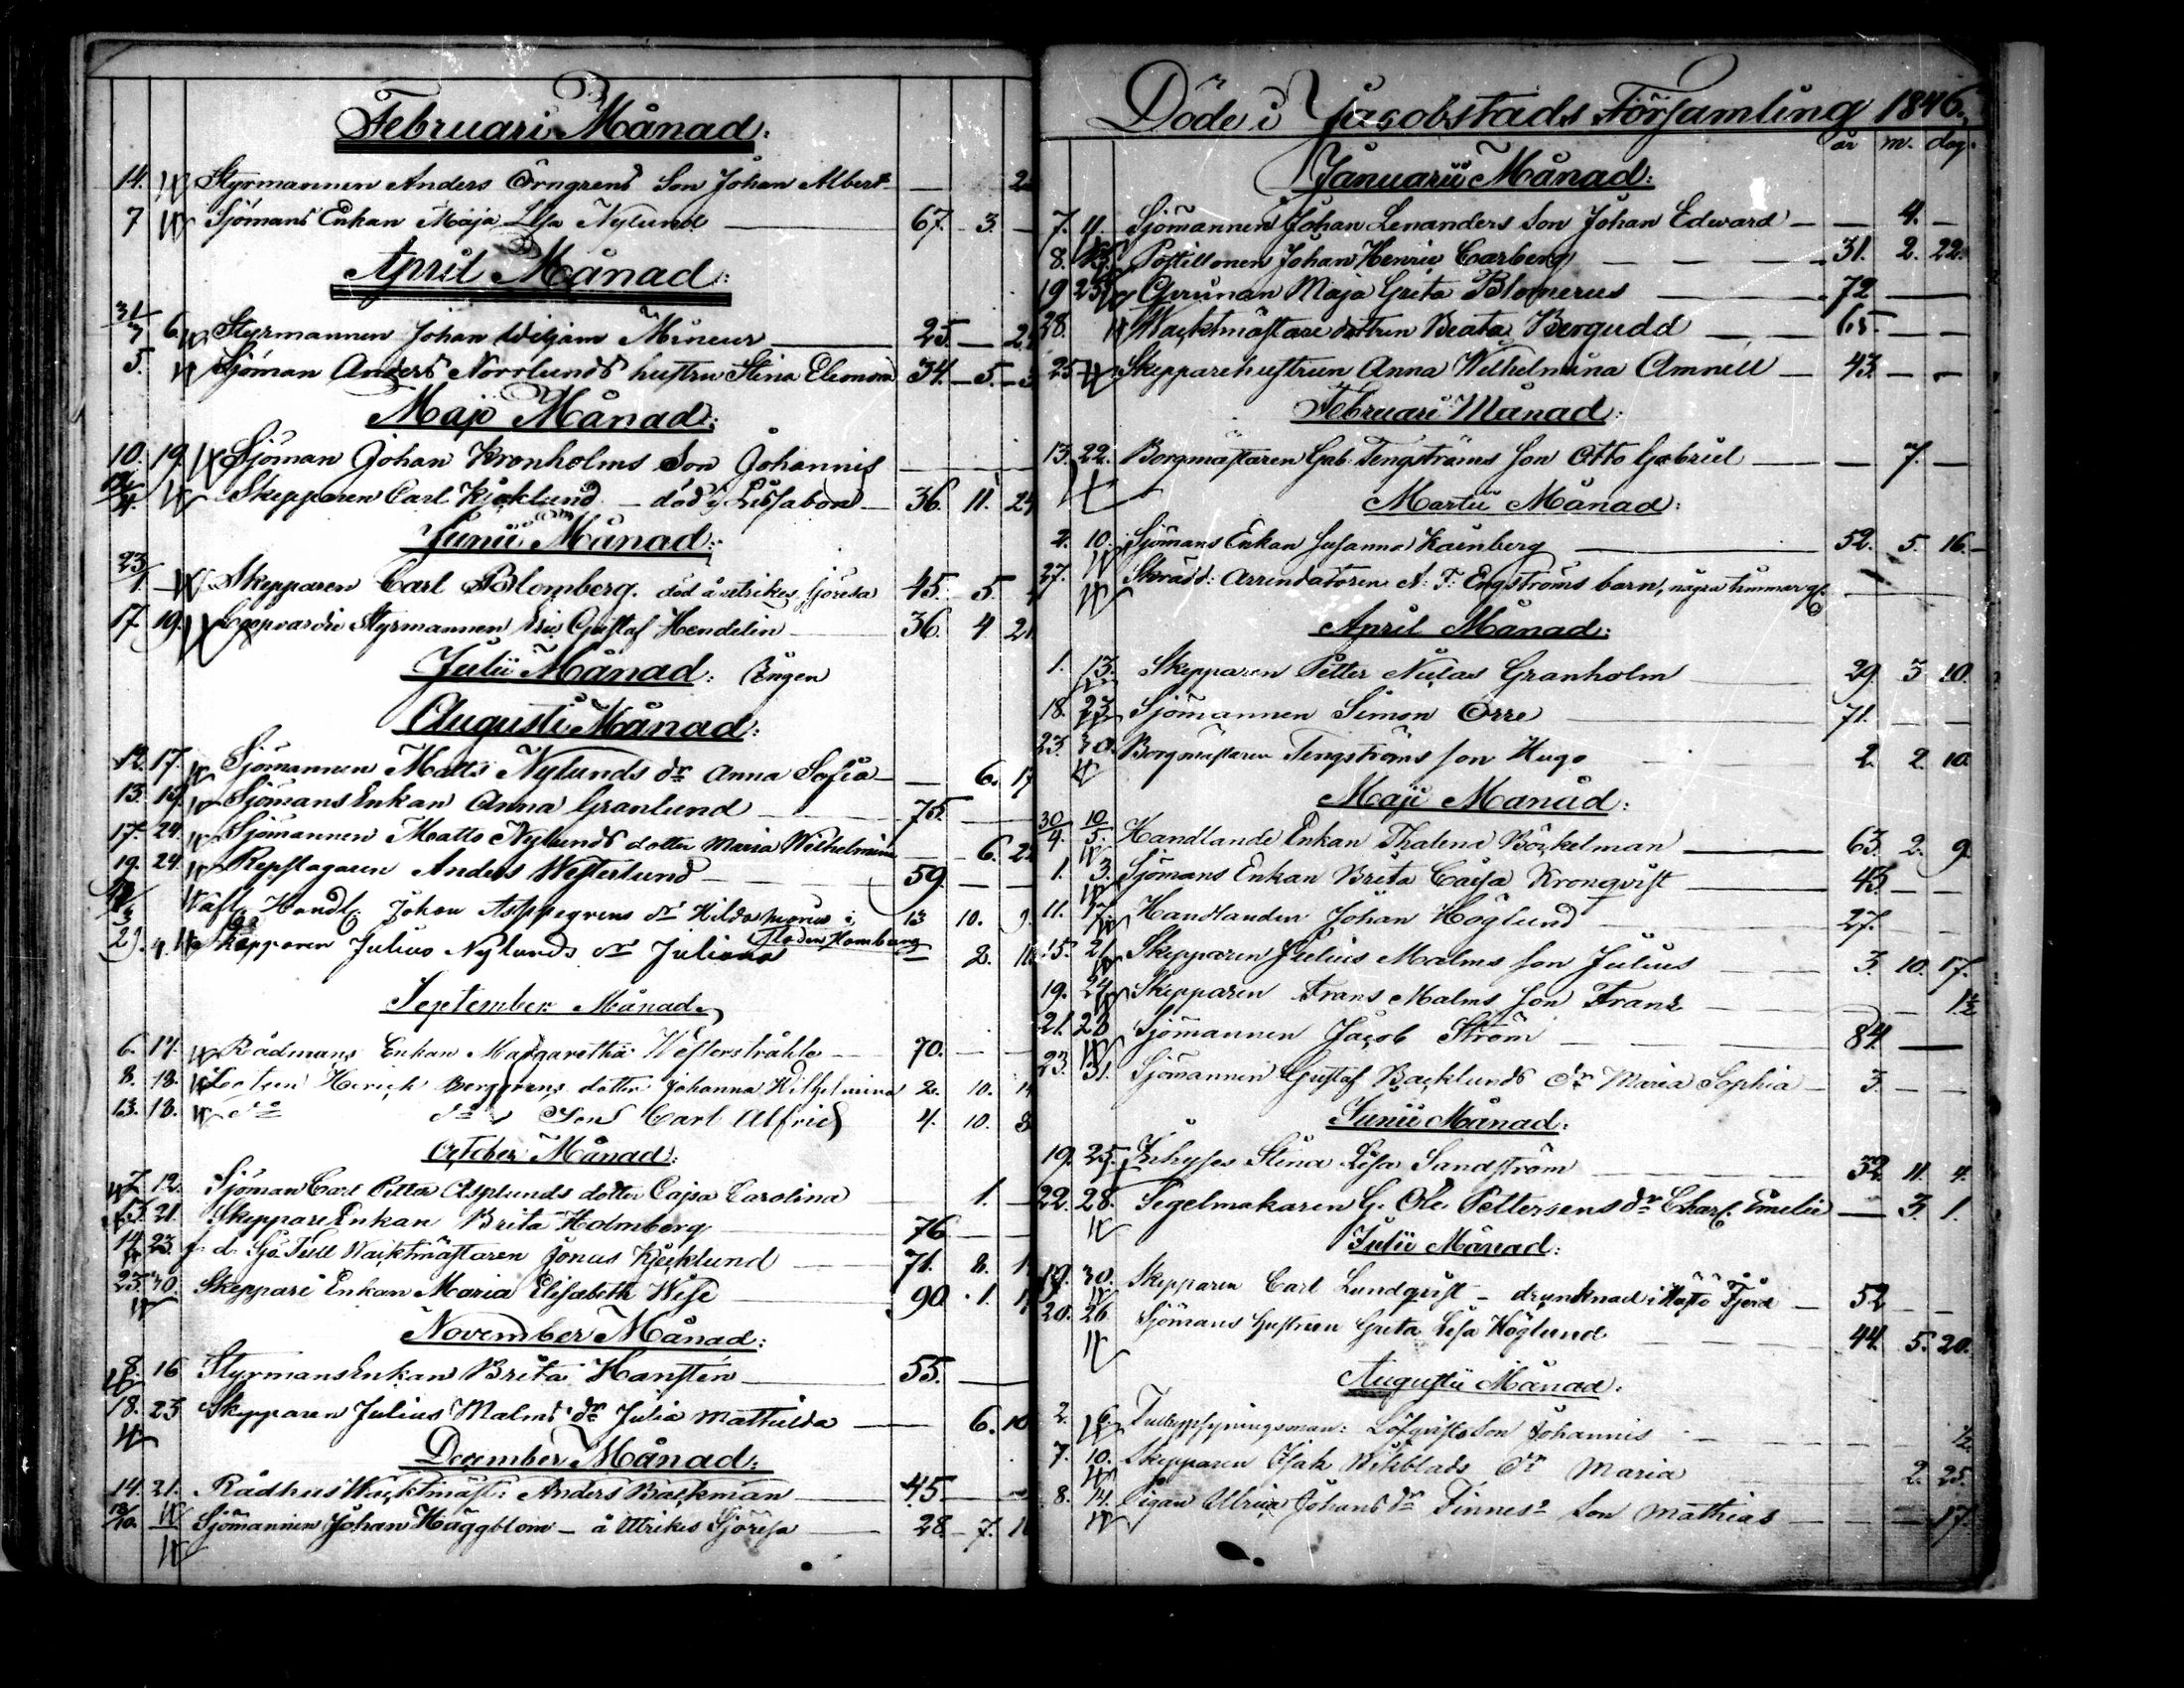 Februari Månad:
14. Styrmannen Anders Örngrens Son Johan Albert —
7 Sjömans Enkan Maja Lisa Nylund — 67. 3. —
April Månad:
31/3 6. Styrmannen Johan Wiljam Mineur — 25. —
5. Sjöman Anders Norrlunds hustru Stina Eleonora 34. 5.
Maji Månad:
10. 19. Sjöman Johan Kronholms Son Johannis — — —
Skepparen Carl Kjæklund — död i Lissabon — 36. 11. 24
Junii Månad:
23/1. — Skepparen Carl Blomberg. död å utrikes sjöresa 45. 5.
17. 19. Styrmannen Eric Gustaf Hendelin — 36. 4 21
Julii Månad: Ingen
Augusti Månad:
12. 17. Sjömannen Matts Nylunds dr Anna Sofia — — 6. 17
13. 19. Sjömans Enkan Anna Granlund — 75. —
17. 24. Sjömannen Matts Nylunds dotter Maria Wilhelmina — 6.
19. 24. Repslagaren Anders Westerlund — 59. — —
Handl: Johan Aspegrens dr Hilda 13 10. 9.
i floden
29. Skepparen Julius Nylunds dr Juliana — 2.
September Månad
6. 17. Rådmans Enkan Margaretha Westerstråhle — 70. — —
8. 18. Lootsen Henrich Berggrens dotter Johanna Wilhelmina 2. 10. 14
13. 18. do do Son Carl Alfrid 4. 10. 8
October Månad:
7. 12. Sjöman Carl Petter Asplunds dotter Cajsa Carolina — 1. —
13. 21. Skeppare Enkan Brita Holmberg — 76 — —
14. 23. f. d. Sjö Tull Wacktmästaren Jonas Kjecklund — 71. 8.
23. 30. Skeppare Enkan Maria Elisabeth Wise — 90. 1.
November Månad:
8. 16 Styrmans Enkan Brita Hansten — 55. —
18. 23 Skepparen Julius Malms dr Julia Mathilda — — 6. 10
December Månad:
14. 21. Rådhus Wacktmäst: Anders Backman — 45. — —
13/10. Sjömannen Johan Häggblom — å Utrikes Sjöresa — 28. 7.
Döde i Jacobstads Församling 1846.
år m. dag.
Januarii Månad:
7. 11. Sjömannen Johan Lenanders Son Johan Edward — — 4. —
8. Postillonen Johan Henric Carberg — 31. 2. 22.
19 25. Gumman Maja Greta Blomerus — 72 — —
28. Wacktmästare dottren Beata Bergudd — 65. — —
25 Skepparehustrun Anna Wilhelmina Amnell — 43. — —
Februari Månad:
13. 22. Borgmästaren Gab: Tengströms son Otto Gabriel — — 7. —
Martii Månad:
2. 10. Sjömans Enkan Susanna Kainberg — 52. 5. 16.
27. Arrendatoren Engströms barn, några timmar gl. —
April Månad:
1. 13. Skepparen Petter Niclas Granholm — 29. 3 10.
18. 23 Sjömannen Simon Orre — 71. — —
23. 30. Borgmästaren Tengströms son Hugo 2. 2. 10
Maji Månad:
30/4. 10/5. Handlande Enkan Thalena Böckelman — 63. 2. 9.
1. 3. Sjömans Enkan Brita Cajsa Kronqvist — 43 — —
11. 17. Handlanden Johan Höglund — 27. — —
15. 21. Skepparen Julius Malms son Julius — 3. 10. 17.
19. 24. Skepparen Frans Malms son Frans — — — 1½
21. 28 Sjömannen Jacob Ström — 84. —
23. 31. Sjömannen Gustaf Backlunds dr Maria Sophia — 3. — —
Junii Månad:
19. 25. Inhyses Stina Lisa Sandström — 32. 11. 4.
22. 28. Segelmakaren G. Ole Pettersens dr Charl. Emelie — 3. 1.
Julii Månad:
19. 30. Skepparen Carl Lundqvist — drunknad i Fjerd — 52 — —
20. 26 Sjömans hustrun Greta Lisa Höglund — 44. 5. 20.
Augustii Månad:
2. 6. Löfqvists Son Johannis — — — ½
7. 10. Skepparen Isak Wikblads dr Maria 2. 25.
8. 14. Pigan Ulrica Johans dr Finnes Son Mathias — — — 17.